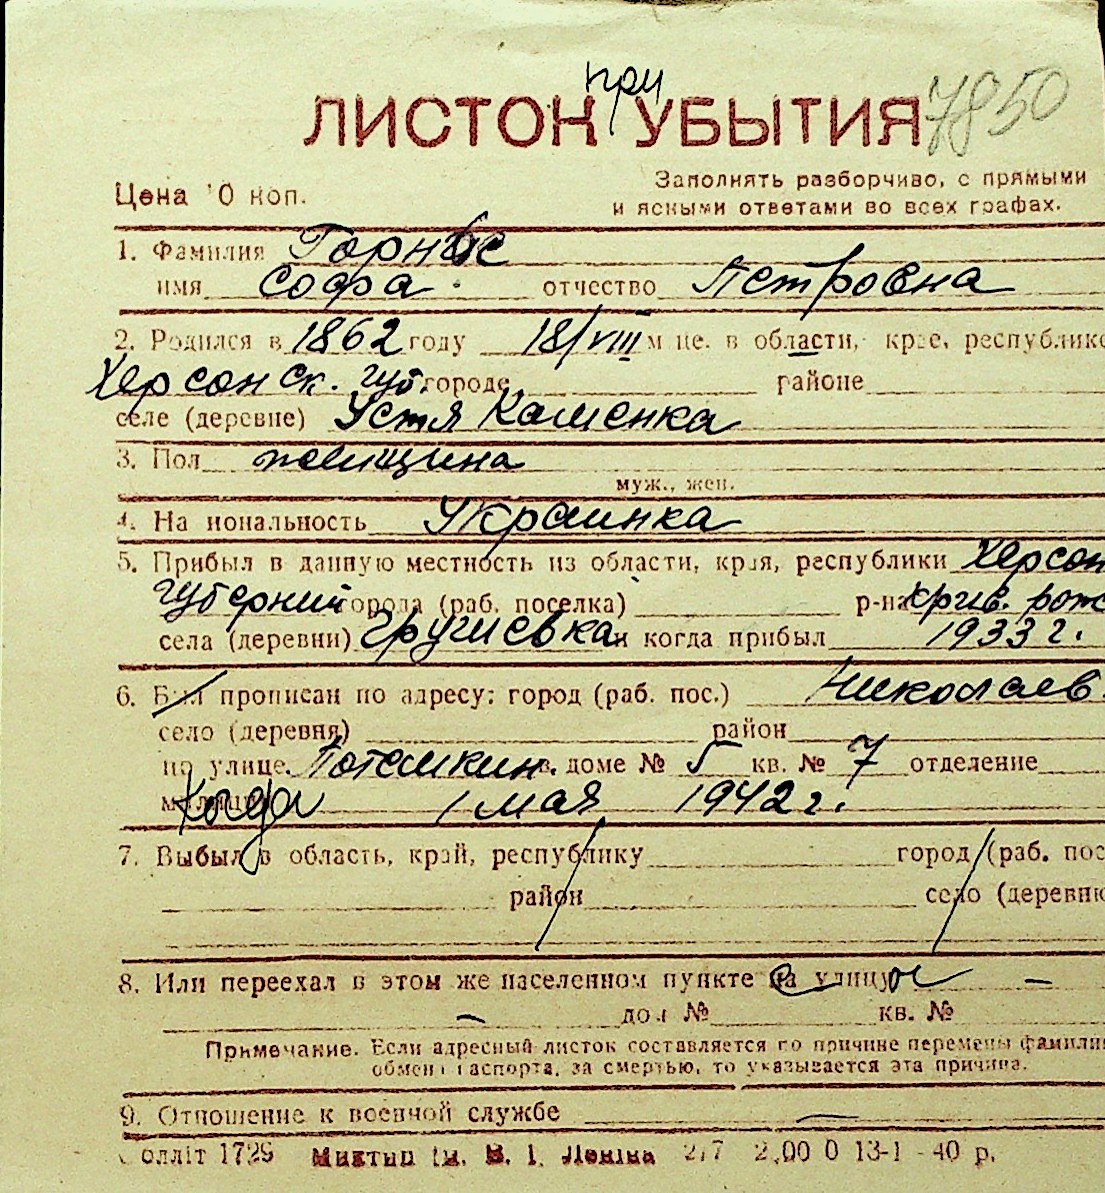 при
ЛИСТОК УБЫТИЯ 7850
Цена 10 коп.
Заполнять разборчиво, с прямыми
и ясными ответами во всех графах.
1. Фамилия
имя Софа отчество Петровна
2. Родился в 1862 году 18/VIII м-це. в области, крае, республике
Херсонск. губ. городе районе
селе (деревне) Устя Каменка
3. Пол женщина
муж., жен.
4. Национальность Украинка
5. Прибыл в данную местность из области, края, республики Херсон
губернии города (раб. поселка) р-на
села (деревни) Грушевка и когда прибыл 1933 г.
6. Был прописан по адресу: город (раб. пос.) Николаев
село (деревня) район
по улице Потемкин. в доме № 5 кв. № 7 отделение
милиции Когда 1 мая 1942 г.
7. Выбыл в область, край, республику город (раб. пос
район село (деревню
8. Или переехал в этом же населенном пункте на улицу —
— дом № кв. №
Примечание. Если адресный листок составляется по причине перемены фамилии
обмена паспорта, за смертью, то указывается эта причина.
9. Отношение к военной службе —
олліт 1729 Миктип ім. В. І. Леніна 217 2,00 0 13-1 - 40 р.